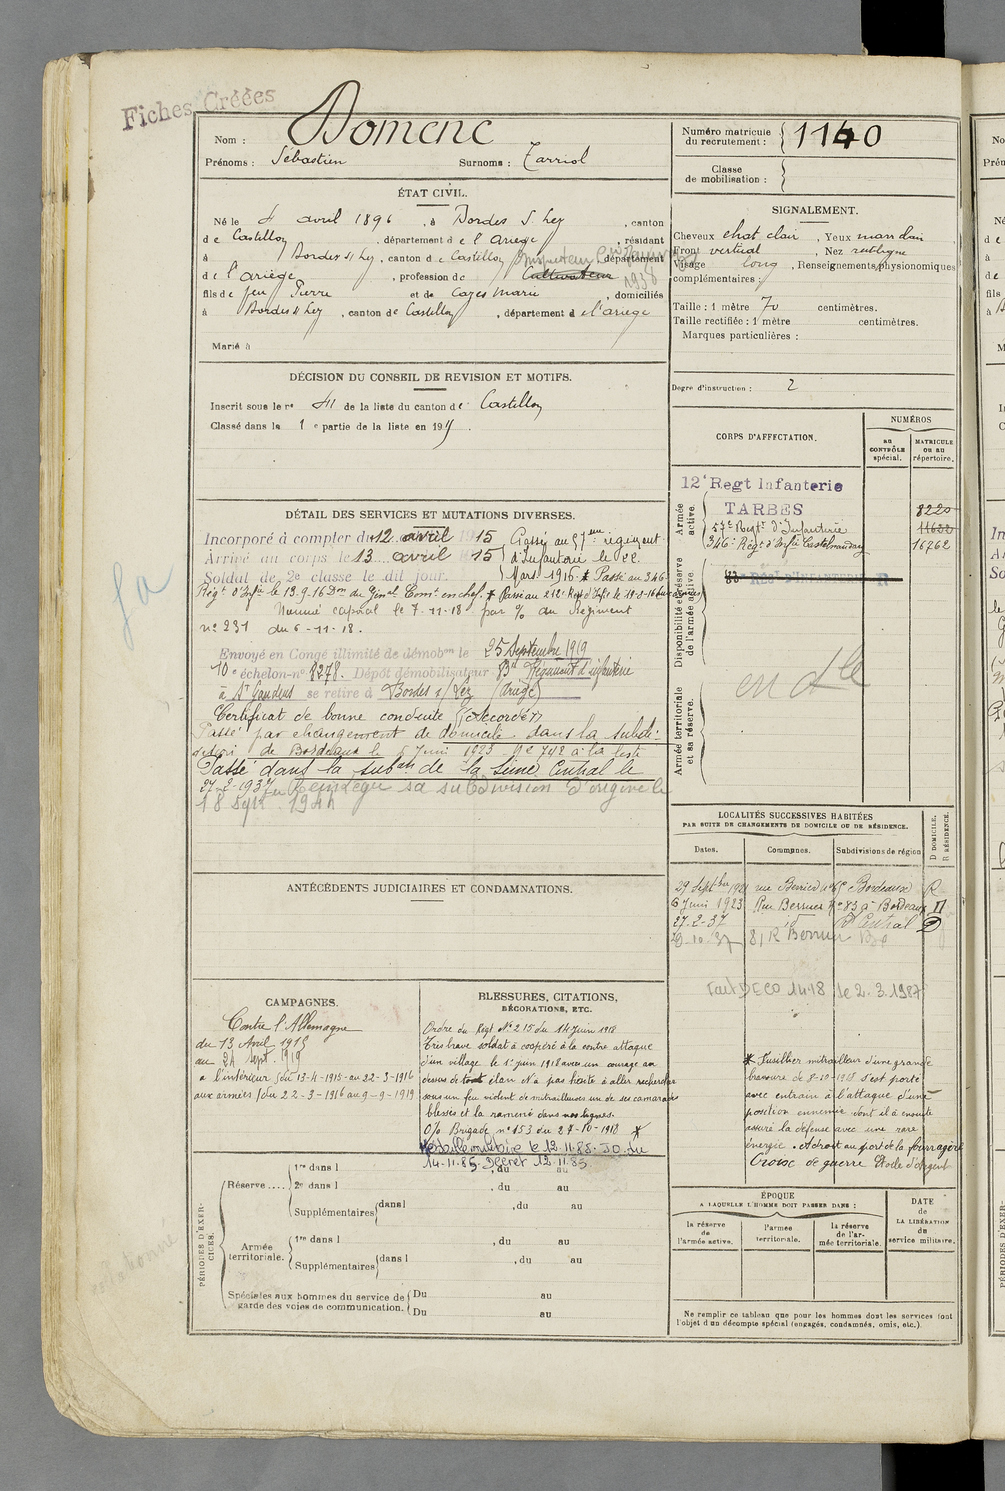 Fiches Créées
Nom : Domenc
Prénoms : Sébastien Surnoms : Tarriol
Numéro matricule du recrutement : 1140
Classe de mobilisation :
ÉTAT CIVIL.
Né le 4 avril 1896, à Bordes s/ Lez, canton
de Castillon, département de l'Ariège, résidant
à Bordes s/ Lez, canton de Castillon, département
de l'ariège, profession de Cultivateur
1938
fils de feu Pierre et de Cazes Marie, domiciliés
à Bordes s/ Lez, canton de Castillon, département de l'ariège
Marié à
SIGNALEMENT.
Cheveux chat clair, Yeux marr clair
Front vertical, Nez rectiligne
Visage long, Renseignements physionomiques
complémentaires :
Taille : 1 mètre 70 centimètres.
Taille rectifiée : 1 mètre centimètres.
Marques particulières :
Degré d'instruction : 2
DÉCISION DU CONSEIL DE REVISION ET MOTIFS.
Inscrit sous le n° 41 de la liste du canton de Castillon
Classé dans la 1e partie de la liste en 191
CORPS D'AFFECTATION.
NUMÉROS
au CONTRÔLE spécial.
MATRICULE OU AU répertoire.
Armée active.
12e Regt Infanterie
TARBES 8220
57e Regt d'Infanterie 11622
346e Régt d'Infie Castelnaudary 16762
Disponibilité et réserve de l'armée active.
Armée territoriale et sa réserve.
DÉTAIL DES SERVICES ET MUTATIONS DIVERSES.
Incorporé à compter du 12 avril 1915 Passé au 57me régiment
Arrivé au corps le 13 avril 15 d'Infanterie le 22
Soldat de 2e classe le dit jour. Mars 1916 * Passé au 346
Régt d'Infie le 13.9.16 Don du Génal Comt en chef. * Passé au 212e Regt d'Infie le
Nommé caporal le 7-11-18 par % du Régiment
n° 231 du 6-11-18.
Envoyé en Congé illimité de démobon le 25 Septembre 1919
10e échelon-n° 8278. Dépôt démobilisateur 83e Régiment d'infanterie
à St Gaudens se retire à Bordes s/ Lez (Ariège)
Certificat de bonne conduite "Accordé"
Passé par changement de domicile dans la subdi-
vision de Bordeaux le 6 Juin 1923 n° 742 à la liste
Passé dans la subon de la Seine Central le
27-2-1937 Réintègre sa subdivision d'origine le
18 Sept. 1944
ANTÉCÉDENTS JUDICIAIRES ET CONDAMNATIONS.
LOCALITÉS SUCCESSIVES HABITÉES
PAR SUITE DE CHANGEMENTS DE DOMICILE OU DE RÉSIDENCE.
Dates. Communes. Subdivisions de région D DOMICILE. R RÉSIDENCE.
29 Septbre Bordeaux R
6 Juin 1923 n° 83 à Bordeaux D
27-2-37 id Central D
81 R Berruer
Fait DECO 14.18 le 2.3.1987
CAMPAGNES.
Contre l'Allemagne
du 13 Avril 1915
au 24 Sept 1919
a l'intérieur (du 13-4-1915 - au 22-3-1916
aux armées (du 22-3-1916 au 9-9-1919
BLESSURES, CITATIONS,
DÉCORATIONS, ETC.
Ordre du Régt N° 215 du 14 Juin 1918
Très brave soldat à coopéré à la contre attaque
d'un village le 1er juin 1918 avec un courage au
dessus de tout élan N'a pas hésité à aller rechercher
sous un feu violent de mitrailleuses un de ses camarades
blessés et la ramené dans nos lignes.
O/o Brigade n° 153 du 27-10-1918 *
Médaille militaire le 12.11.85. JO du
14-11-85. Décret 12.11.85
* Fusillier mitrailleur d'une grande
bravoure de 8-10-1918 s'est porté
avec entrain à l'attaque d'une
position ennemie dont il a ensuite
assuré la défense avec une rare
énergie. A droit au port de la fourragère
Croix de guerre Etoile d'Argent
PÉRIODES D'EXERCICES.
Réserve....
1re dans l , du au
2e dans l , du au
Supplémentaires dans l , du au
Armée territoriale.
1re dans l , du au
Supplémentaires dans l , du au
Spéciales aux hommes du service de garde des voies de communication.
Du au
Du au
ÉPOQUE
A LAQUELLE L'HOMME DOIT PASSER DANS :
la réserve de l'armée active.
l'armée territoriale.
la réserve de l'armée territoriale.
DATE de LA LIBÉRATION du service militaire.
Ne remplir ce tableau que pour les hommes dont les services font
l'objet d'un décompte spécial (engagés, condamnés, omis, etc.).